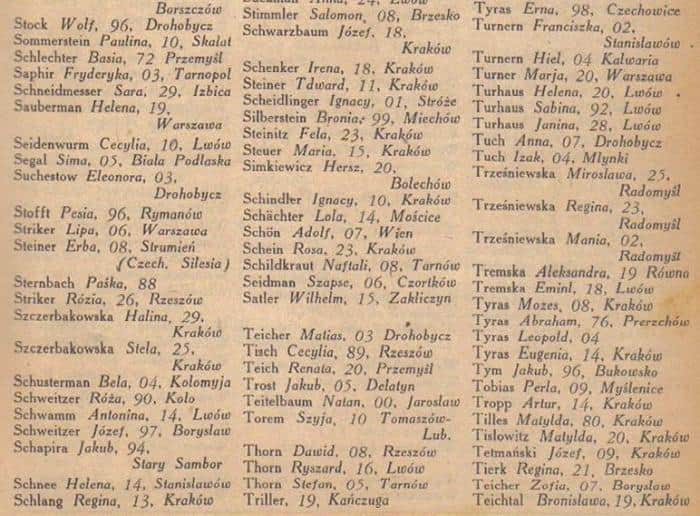 Borszczów
Stock Wolf, 96, Drohobycz
Sommerstein Paulina, 10, Skalat
Schlechter Basia, 72 Przemyśl
Saphir Fryderyka, 03, Tarnopol
Schneidmesser Sara, 29, Izbica
Sauberman Helena, 19,
Warszawa
Seidenwurm Cecylia, 10, Lwów
Segal Sima, 05, Biała Podlaska
Suchestow Eleonora, 03,
Drohobycz
Stofft Pesia, 96, Rymanów
Striker Lipa, 06, Warszawa
Steiner Erba, 08, Strumień
(Czech. Silesia)
Sternbach Paśka, 88
Striker Rózia, 26, Rzeszów
Szczerbakowska Halina, 29,
Kraków
Szczerbakowska Stela, 25,
Kraków
Schusterman Bela, 04, Kołomyja
Schweitzer Róża, 90, Koło
Schwamm Antonina, 14, Lwów
Schweitzer Józef, 97, Borysław
Schapira Jakub, 94,
Stary Sambor
Schnee Helena, 14, Stanisławów
Schlang Regina, 13, Kraków
Stimmler Salomon, 08, Brzesko
Schwarzbaum Józef, 18,
Kraków
Schenker Irena, 18, Kraków
Steiner Tdward, 11, Kraków
Scheidlinger Ignacy, 01, Stróże
Silberstein Bronia, 99, Miechów
Steinitz Fela, 23, Kraków
Steuer Maria, 15, Kraków
Simkiewicz Hersz, 20,
Bolechów
Schindler Ignacy, 10, Kraków
Schächter Lola, 14, Mościce
Schön Adolf, 07, Wien
Schein Rosa, 23, Kraków
Schildkraut Naftali, 08, Tarnów
Seidman Szapse, 06, Czortków
Satler Wilhelm, 15, Zakliczyn
Teicher Matias, 03 Drohobycz
Tisch Cecylia, 89, Rzeszów
Teich Renata, 20, Przemyśl
Trost Jakub, 05, Delatyn
Teitelbaum Natan, 00, Jarosław
Torem Szyja, 10 Tomaszów-
Lub.
Thorn Dawid, 08, Rzeszów
Thorn Ryszard, 16, Lwów
Thorn Stefan, 05, Tarnów
Triller, 19, Kańczuga
Tyras Erna, 98, Czechowice
Turnern Franciszka, 02,
Stanisławów
Turnern Hiel, 04 Kalwaria
Turner Marja, 20, Warszawa
Turhaus Helena, 20, Lwów
Turhaus Sabina, 92, Lwów
Turhaus Janina, 28, Lwów
Tuch Anna, 07, Drohobycz
Tuch Izak, 04, Młynki
Trześniewska Mirosława, 25,
Radomyśl
Trześniewska Regina, 23,
Radomyśl
Trześniewska Mania, 02,
Radomyśl
Tremska Aleksandra, 19 Równo
Tremska Eminl, 18, Lwów
Tyras Mozes, 08, Kraków
Tyras Abraham, 76, Prerzchów
Tyras Leopold, 04
Tyras Eugenia, 14, Kraków
Tym Jakub, 96, Bukowsko
Tobias Perla, 09, Myślenice
Tropp Artur, 14, Kraków
Tilles Matylda, 80, Kraków
Tislowitz Matylda, 20, Kraków
Tetmański Józef, 09, Kraków
Tierk Regina, 21, Brzesko
Teicher Zofia, 07, Borysław
Teichtal Bronisława, 19, Kraków